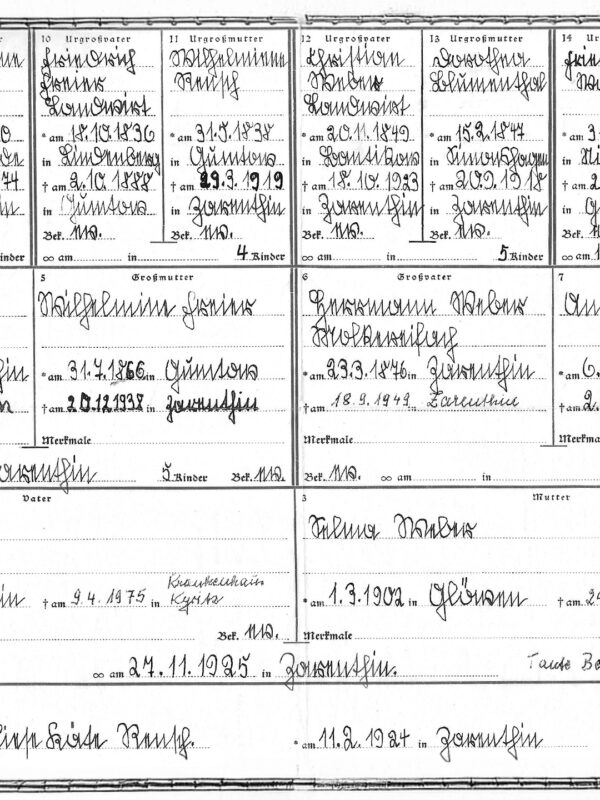 10 Urgroßvater
Friedrich
Freier
Landwirt
* am 18.10.1836
in Lindenberg
† am 2.10.1888
in Gumtow
Bek. ev.
∞ am in
11 Urgroßmutter
Wilhelmine
Rensch
* am 31.5.1838
in Gumtow
† am 29.3.1919
in Zarenthin
Bek. ev.
4 Kinder
12 Urgroßvater
Christian
Weber
Landwirt
* am 20.11.1849
in Bantikow
† am 18.10.1923
in Zarenthin
Bek. ev.
∞ am in
13 Urgroßmutter
Dorothea
Blumenthal
* am 15.2.1847
in Simonshagen
† am 20.9.1918
in Zarenthin
Bek. ev.
5 Kinder
14 Ur
Kinder
5 Großmutter
Wilhelmine Freier
* am 31.7.1866 in Gumtow
† am 20.12.1938 in Zarenthin
Merkmale
5 Kinder Bek. ev.
6 Großvater
Herrmann Weber
Molkereifach
* am 23.3.1876 in Zarenthin
† am 18.9.1949 in Zarenthin
Merkmale
Bek. ev. ∞ am in
7
* am 6.
† am 2.
Merkma
Zarenthin
Vater
† am 9.4.1975 in Krankenhaus
Kyritz
Bek. ev.
3 Mutter
Selma Weber
* am 1.3.1902 in Glöwen † am 24
Merkmale
∞ am 27.11.1925 in Zarenthin. Tante
Käte Rensch. * am 11.2.1924 in Zarenthin